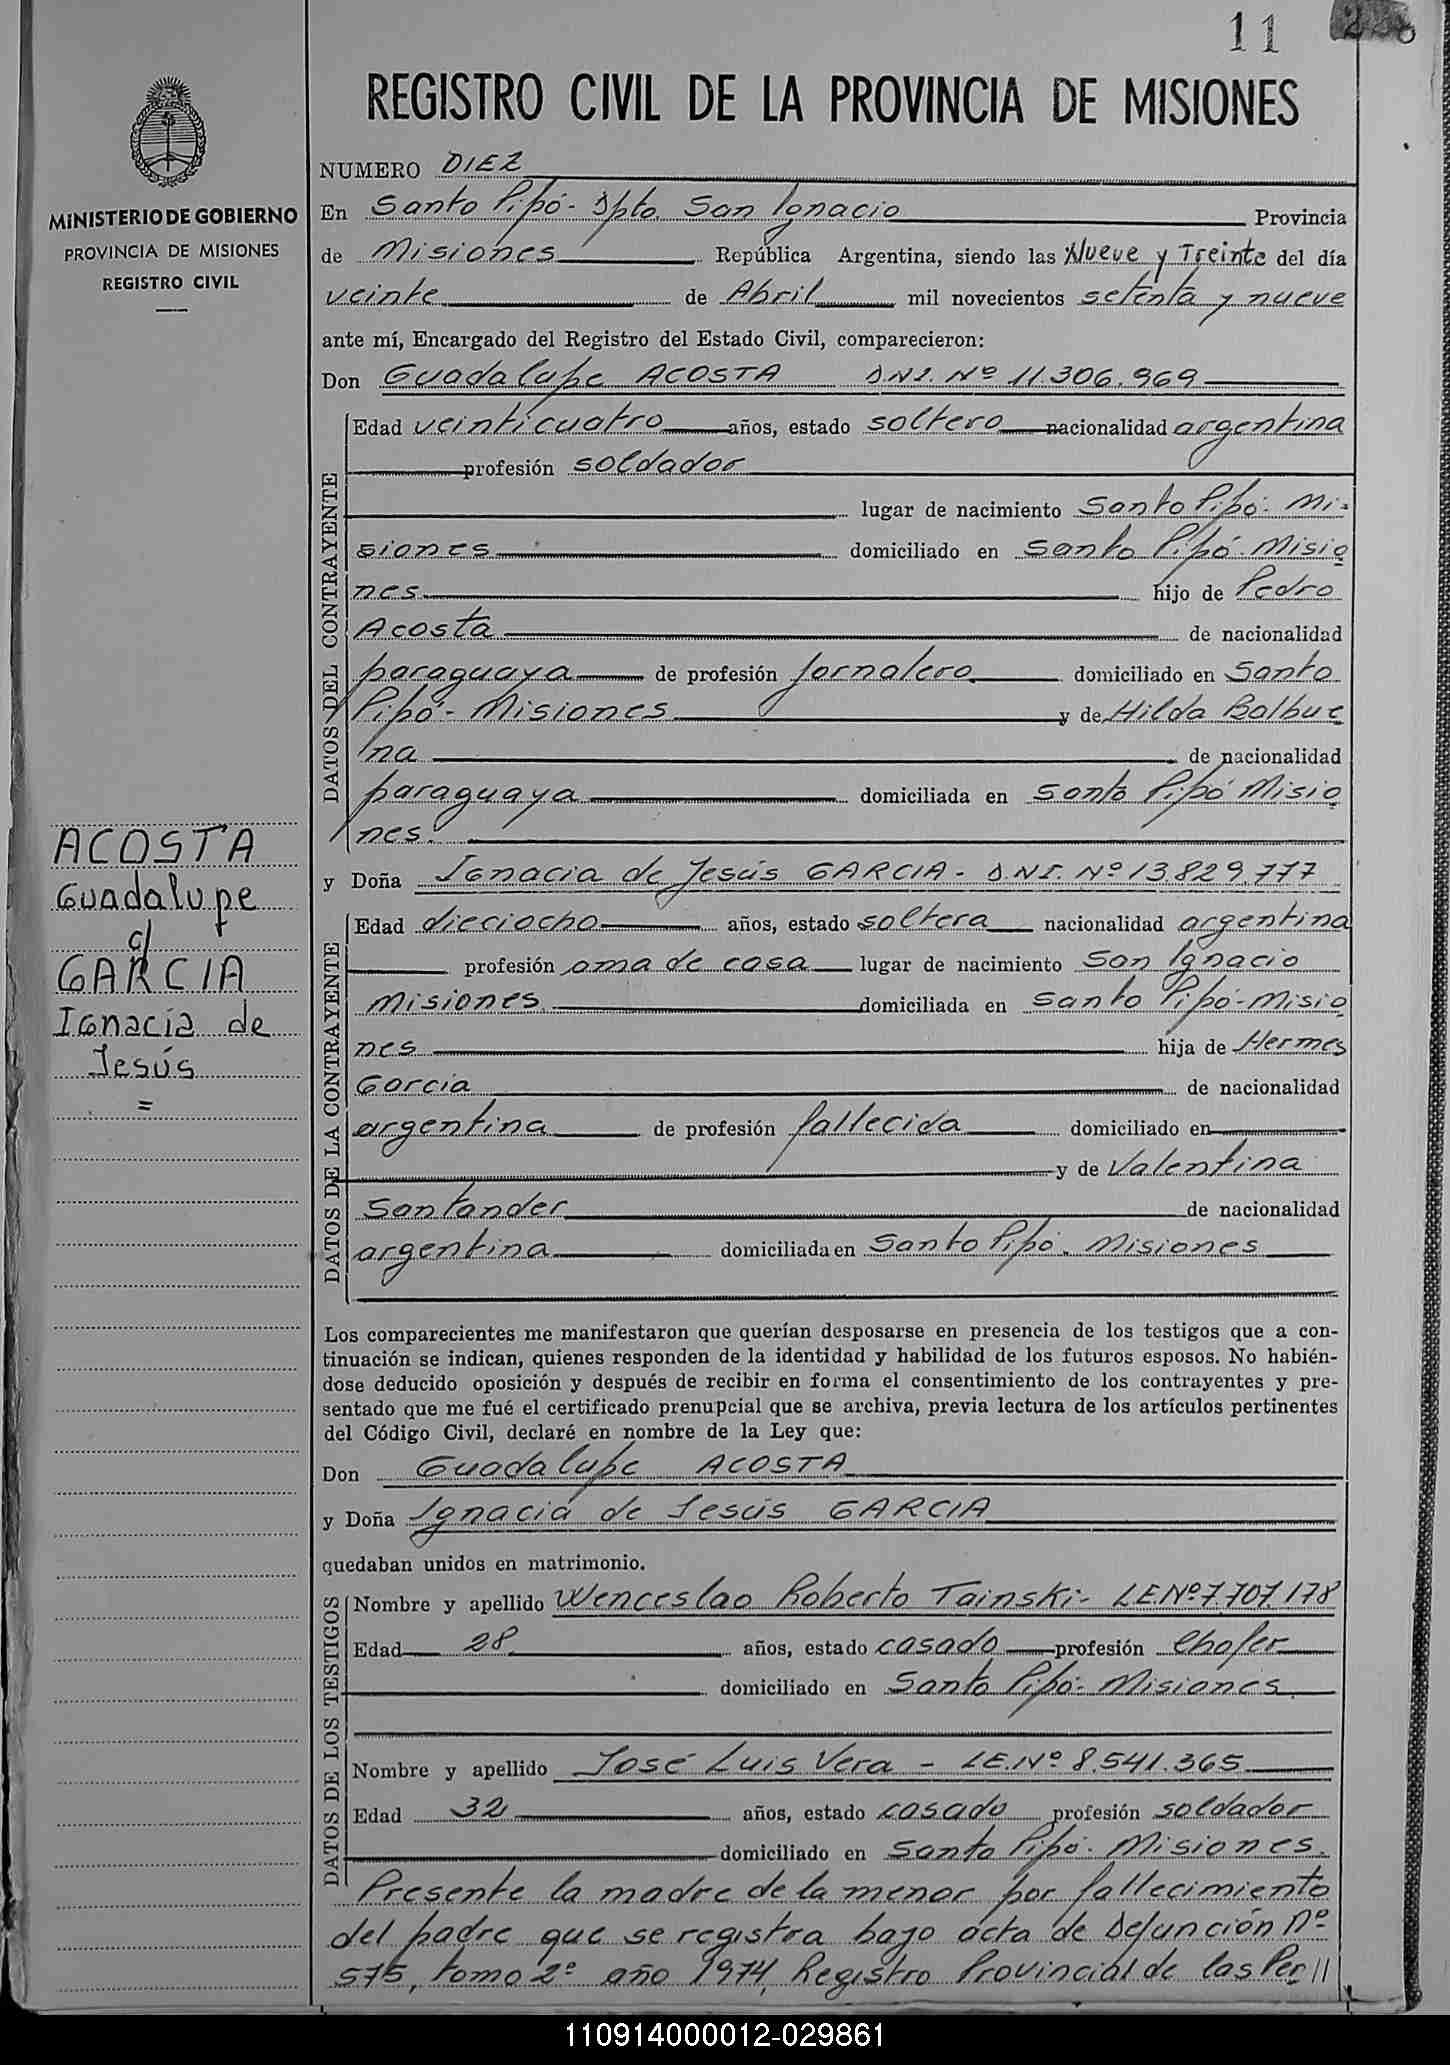 11
REGISTRO CIVIL DE LA PROVINCIA DE MISIONES
MINISTERIO DE GOBIERNO
PROVINCIA DE MISIONES
REGISTRO CIVIL
NUMERO DIEZ
En Santo Pipó - Dpto San Ignacio Provincia
de Misiones República Argentina, siendo las Nueve y Treinta del día
veinte de Abril mil novecientos setenta y nueve
ante mí, Encargado del Registro del Estado Civil, comparecieron:
Don Guadalupe ACOSTA D.N.I. Nº 11.306.969
DATOS DEL CONTRAYENTE
Edad veinticuatro años, estado soltero nacionalidad argentina
profesión soldador
lugar de nacimiento Santo Pipó - Mi-
siones domiciliado en Santo Pipó - Misio
nes hijo de Pedro
Acosta de nacionalidad
paraguaya de profesión Jornalero domiciliado en Santo
Pipó - Misiones y de Hilda Balbue
na de nacionalidad
paraguaya domiciliada en Santo Pipó Misio
nes.
ACOSTA
Guadalupe
c/
GARCIA
Ignacia de
Jesús
=
y Doña Ignacia de Jesús GARCIA - D.N.I. Nº 13.829.777
DATOS DE LA CONTRAYENTE
Edad dieciocho años, estado soltera nacionalidad argentina
profesión ama de casa lugar de nacimiento San Ignacio
Misiones. domiciliada en Santo Pipó - Misio
nes hija de Hermes
Garcia de nacionalidad
argentina de profesión fallecida domiciliado en
y de Valentina
Santander de nacionalidad
argentina domiciliada en Santo Pipó - Misiones
Los comparecientes me manifestaron que querían desposarse en presencia de los testigos que a con-
tinuación se indican, quienes responden de la identidad y habilidad de los futuros esposos. No habién-
dose deducido oposición y después de recibir en forma el consentimiento de los contrayentes y pre-
sentado que me fué el certificado prenupcial que se archiva, previa lectura de los artículos pertinentes
del Código Civil, declaré en nombre de la Ley que:
Don Guadalupe ACOSTA
y Doña Ignacia de Jesús GARCIA
quedaban unidos en matrimonio.
DATOS DE LOS TESTIGOS
Nombre y apellido Wenceslao Roberto Tainski - L.E. Nº 7.707.178
Edad 28 años, estado casado profesión Chofer
domiciliado en Santo Pipó - Misiones.
Nombre y apellido José Luis Vera - L.E. Nº 8.541.365
Edad 32 años, estado casado profesión soldador
domiciliado en Santo Pipó - Misiones.
Presente la madre de la menor por fallecimiento
del padre que se registra bajo acta de Defunción nº
575, tomo 2º año 1974, Registro Provincial de las Per //
110914000012-029861